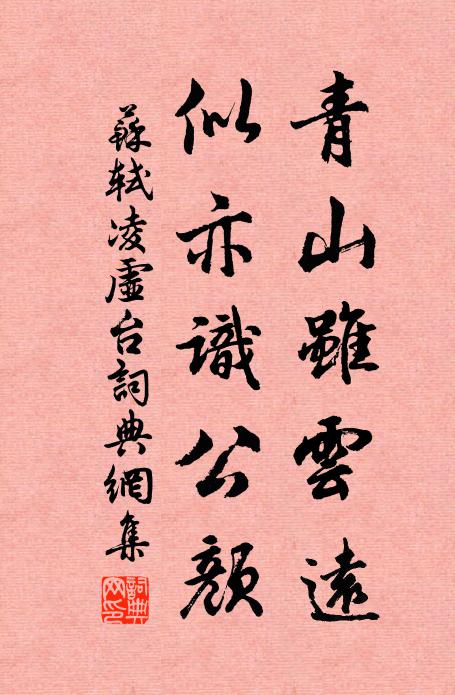 青山雖雲遠
似亦識公顏
蘇軾凌虛台詞典網集
詞典網印